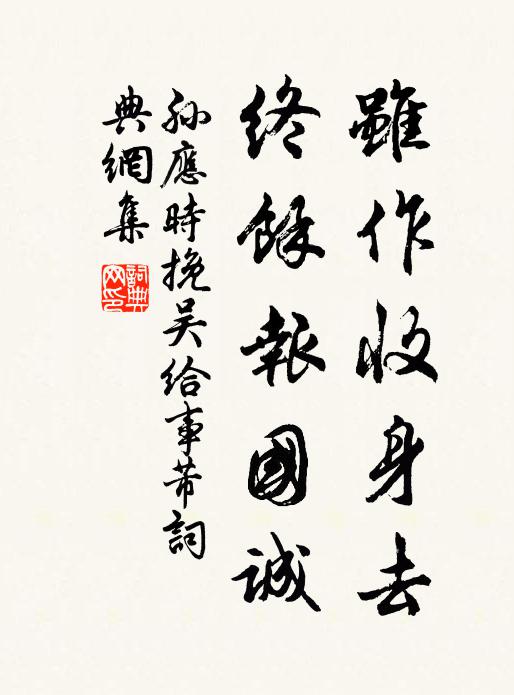 雖作收身去
終餘報國誠
孫應時挽吳給事芾詞
典網集
詞典網印